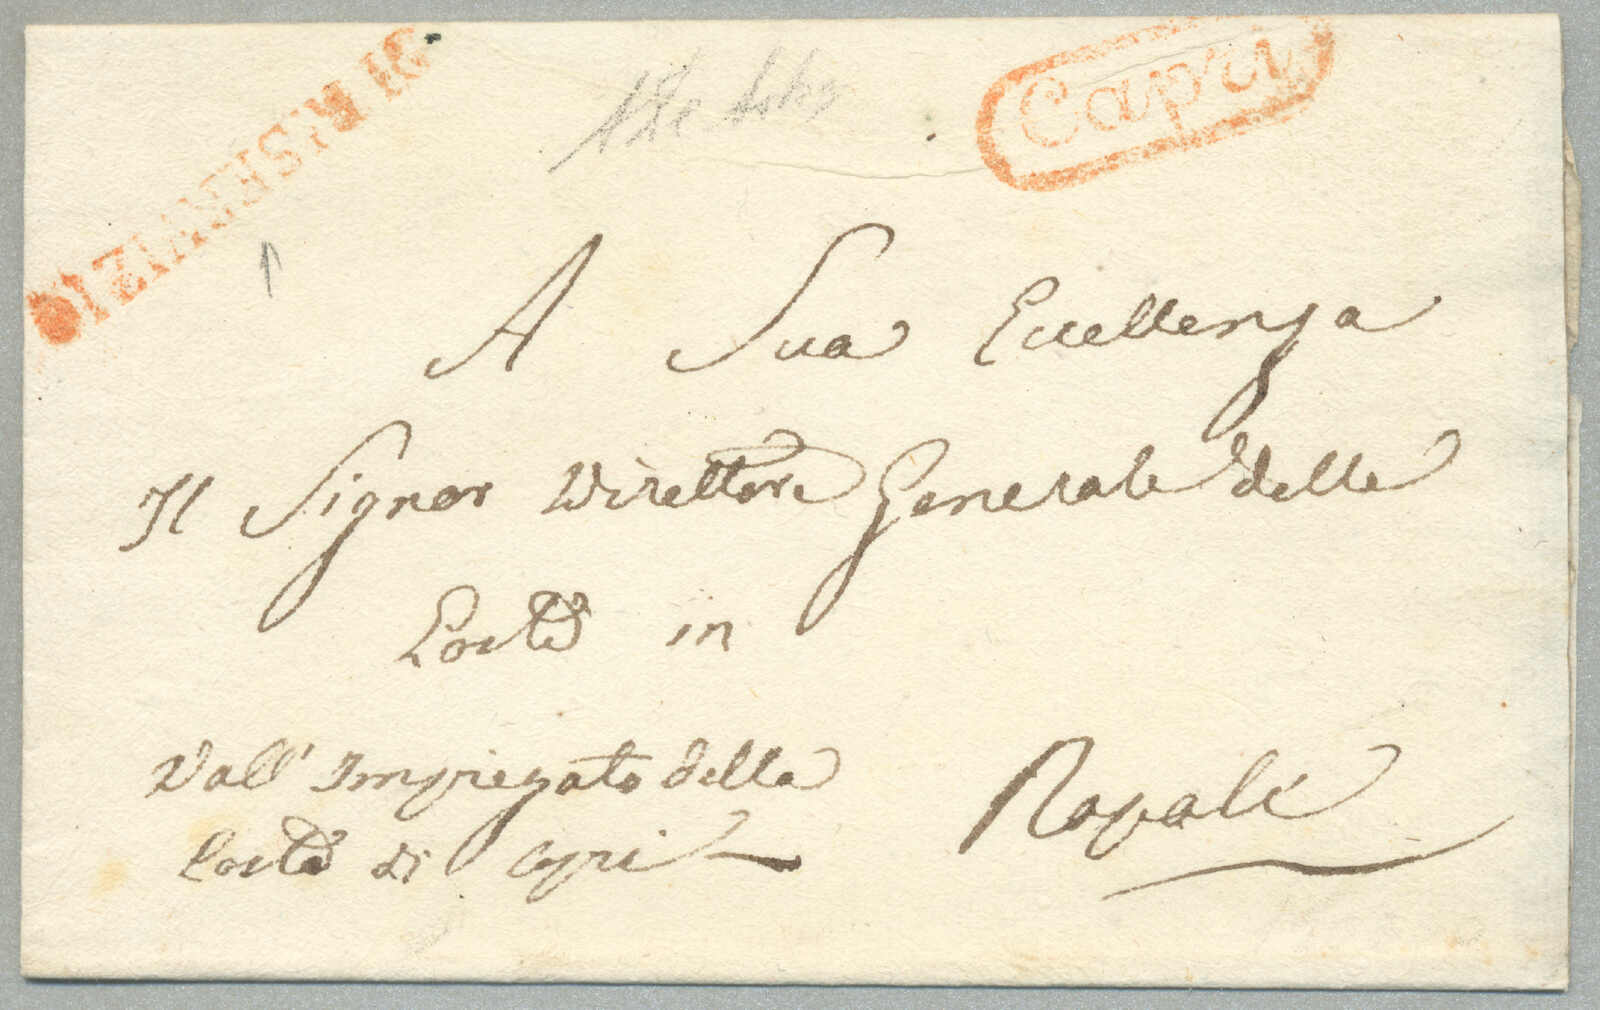 DI RISERVIZIO
Capri
A Sua Eccellenza
Il Signor Direttore Generale delle
Poste in
Napoli
Dall' Impiegato della
Posta di Capri